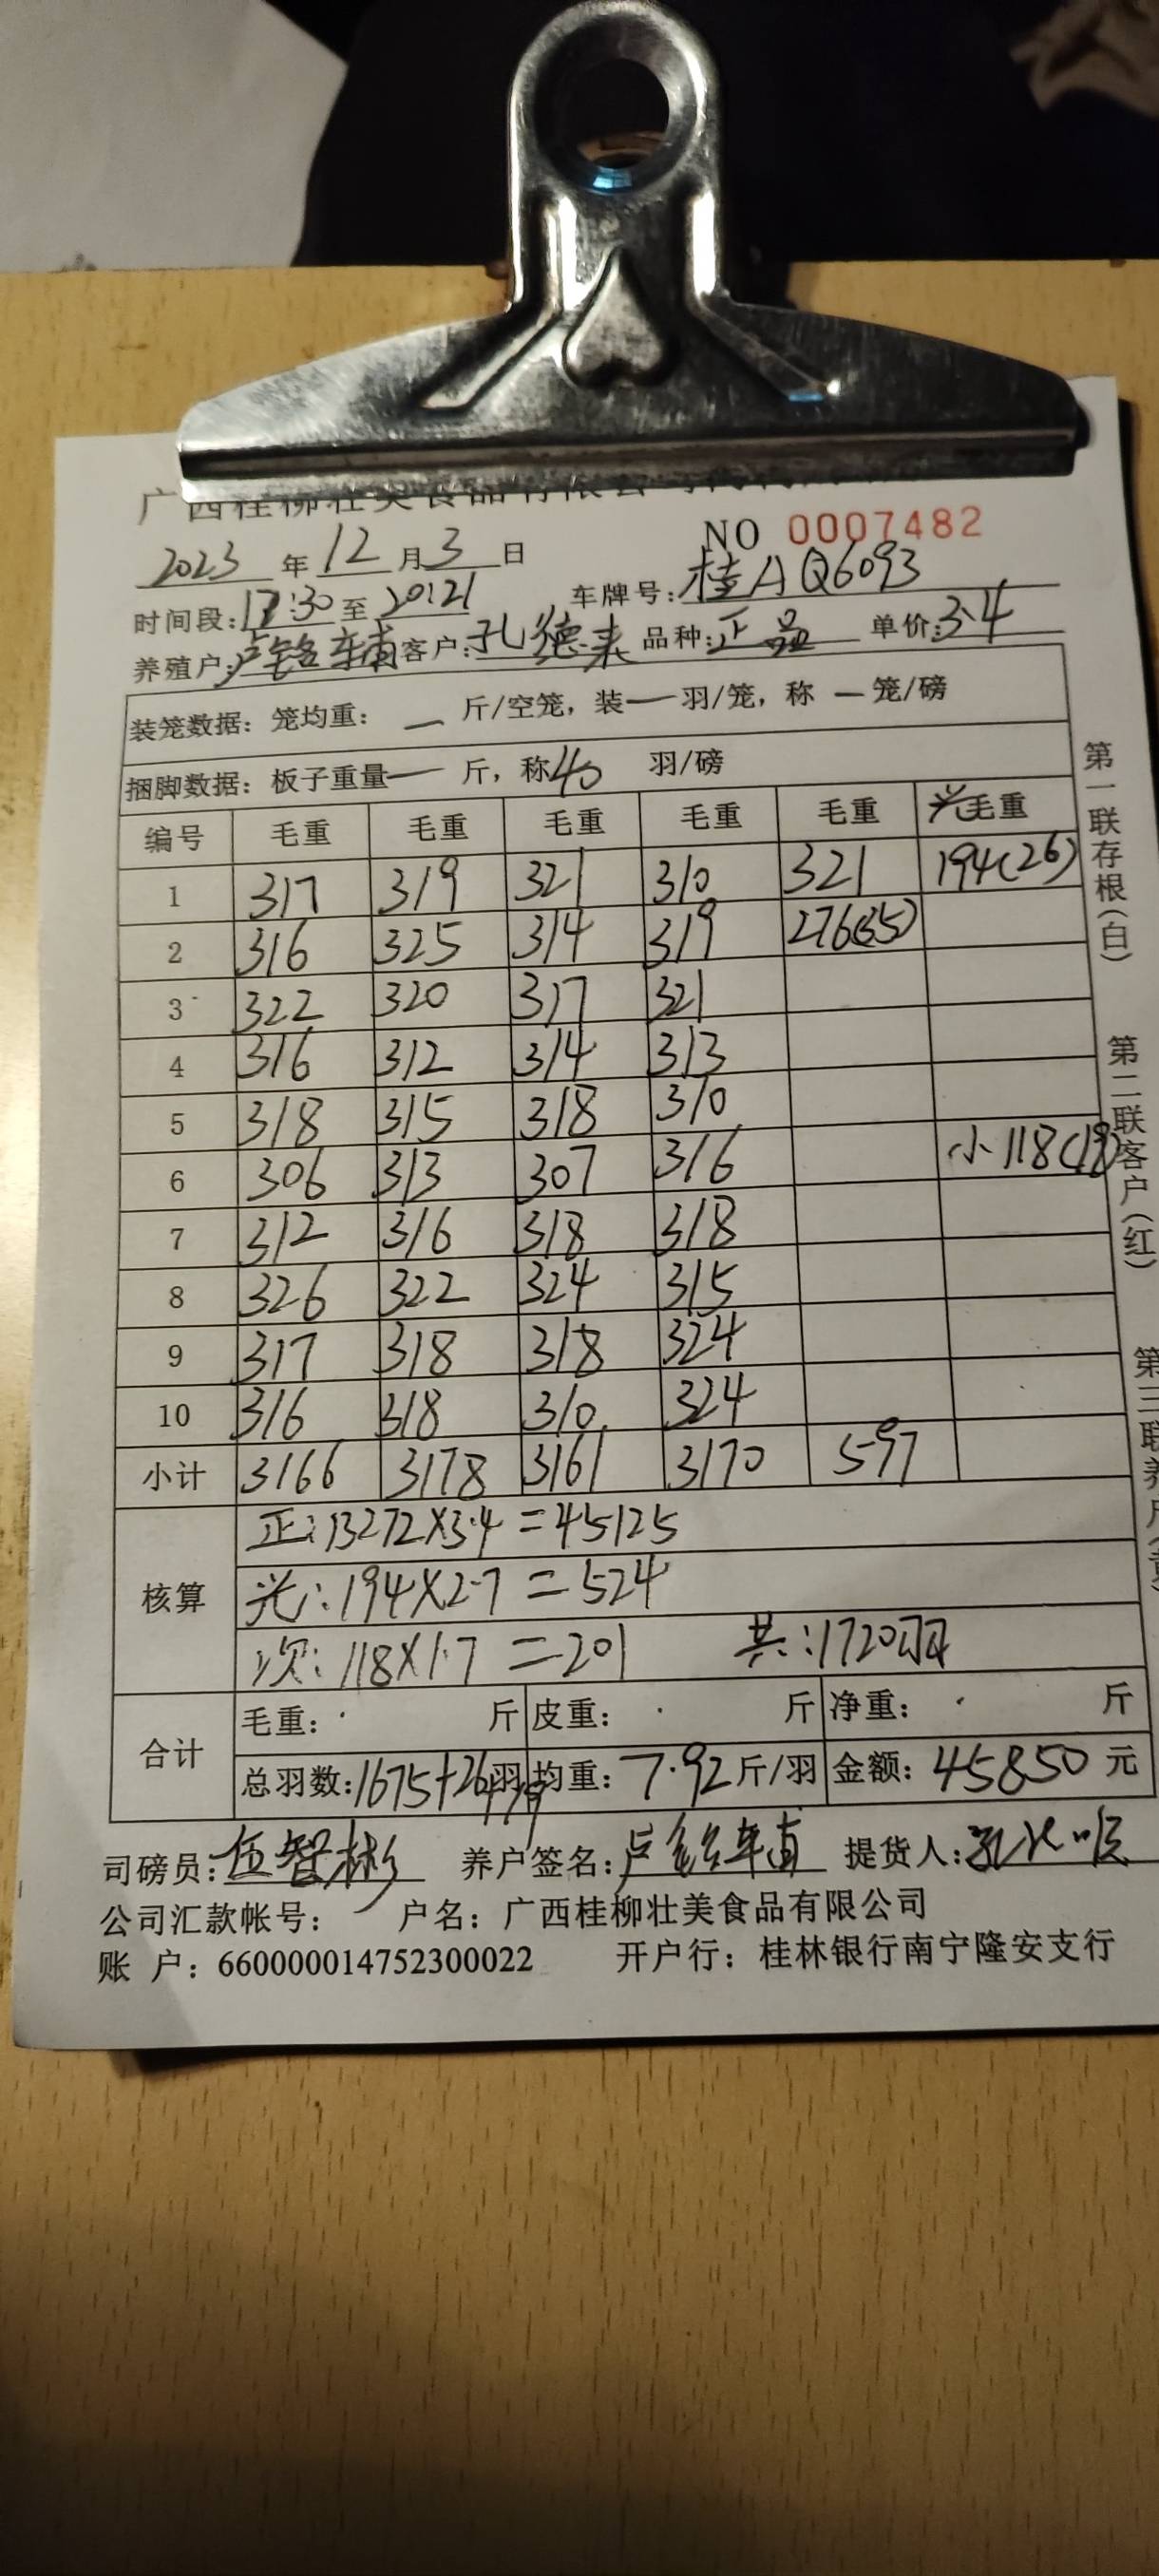 2023 年 12 月 3 日 NO 0007482
时间段: 17:30 至 20:21 车牌号: 桂A Q6093
养殖户: 卢铭辅 客户: 孔德来 品种: 正品 单价: 3.4
装笼数据: 笼均重: — 斤/空笼, 装 — 羽/笼, 称 — 笼/磅
捆脚数据: 板子重量 — 斤, 称 40 羽/磅
编号 毛重 毛重 毛重 毛重 毛重 光毛重
1 317 319 321 310 321 194(26)
2 316 325 314 319 276(35)
3 322 320 317 321
4 316 312 314 313
5 318 315 318 310
6 306 313 307 316 小118(19)
7 312 316 318 318
8 326 322 324 315
9 317 318 318 324
10 316 318 310 324
小计 3166 3178 3161 3170 597
核算
正: 13272×3.4=45125
光: 194×2.7=524
次: 118×1.7=201 共: 1720羽
合计
毛重: 斤 皮重: 斤 净重: 斤
总羽数: 1675+26+19羽 均重: 7.92 斤/羽 金额: 45850 元
司磅员: 伍智彬 养户签名: 提货人:
公司汇款帐号: 户名: 广西桂柳壮美食品有限公司
账 户: 660000014752300022 开户行: 桂林银行南宁隆安支行
第一联存根(白)
第二联客户(红)
第三联养户